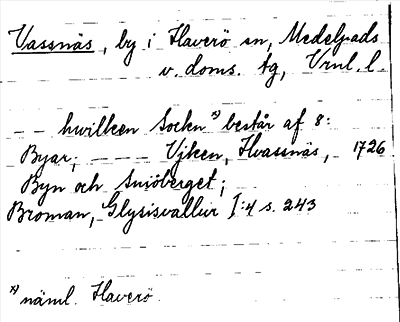 Vassnäs, by i Haverö sn, Medelpads
v. doms. tg, Vrnl. l.
-- hwilken Sockn x) består af 8:
Byar; --- Vjken, Hvassnäs, 1726.
Byn och Snöberget;
Broman, Glysisvallur I:4 s. 243
x) näml. Haverö.